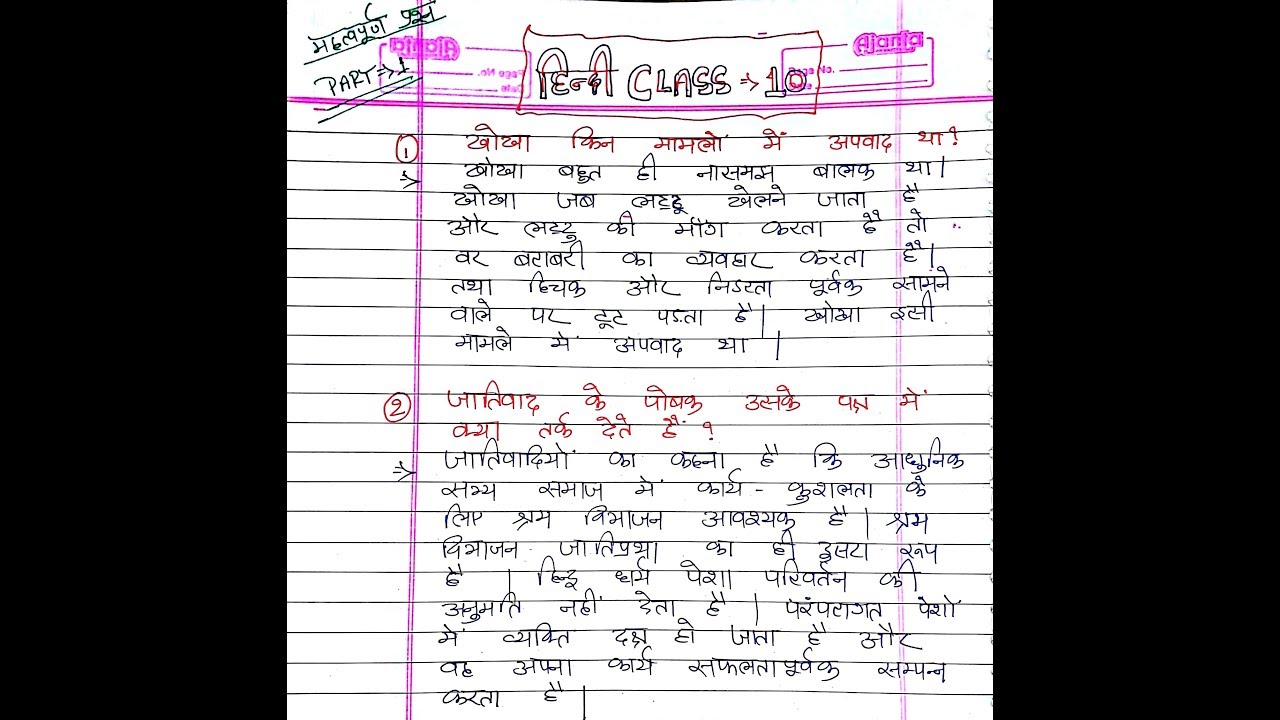 महत्वपूर्ण प्रश्न
PART⇒1
Ajanta
Page No.
Date
हिन्दी CLASS ⇒ 10
Ajanta
Page No.
① खोखा किन मामलों में अपवाद था?
⇒ खोखा बहुत ही नासमझ बालक था।
खोखा जब लट्टू खेलने जाता है
और लट्टु की माँग करता है तो
वर बराबरी का व्यवहार करता है।
तथा हिचक और निडरता पूर्वक सामने
वाले पर टूट पड़ता है। खोखा इसी
मामले में अपवाद था।
② जातिवाद के पोषक उसके पक्ष में
क्या तर्क देते हैं?
⇒ जातिवादियों का कहना है कि आधुनिक
सभ्य समाज में कार्य - कुशलता के
लिए श्रम विभाजन आवश्यक है। श्रम
विभाजन जातिप्रथा का ही दुसरा रूप
है। हिन्दू धर्म पेशा परिवर्तन की
अनुमति नहीं देता है। परंपरागत पेशों
में व्यक्ति दक्ष हो जाता है और
वह अपना कार्य सफलता पूर्वक सम्पन्न
करता है।